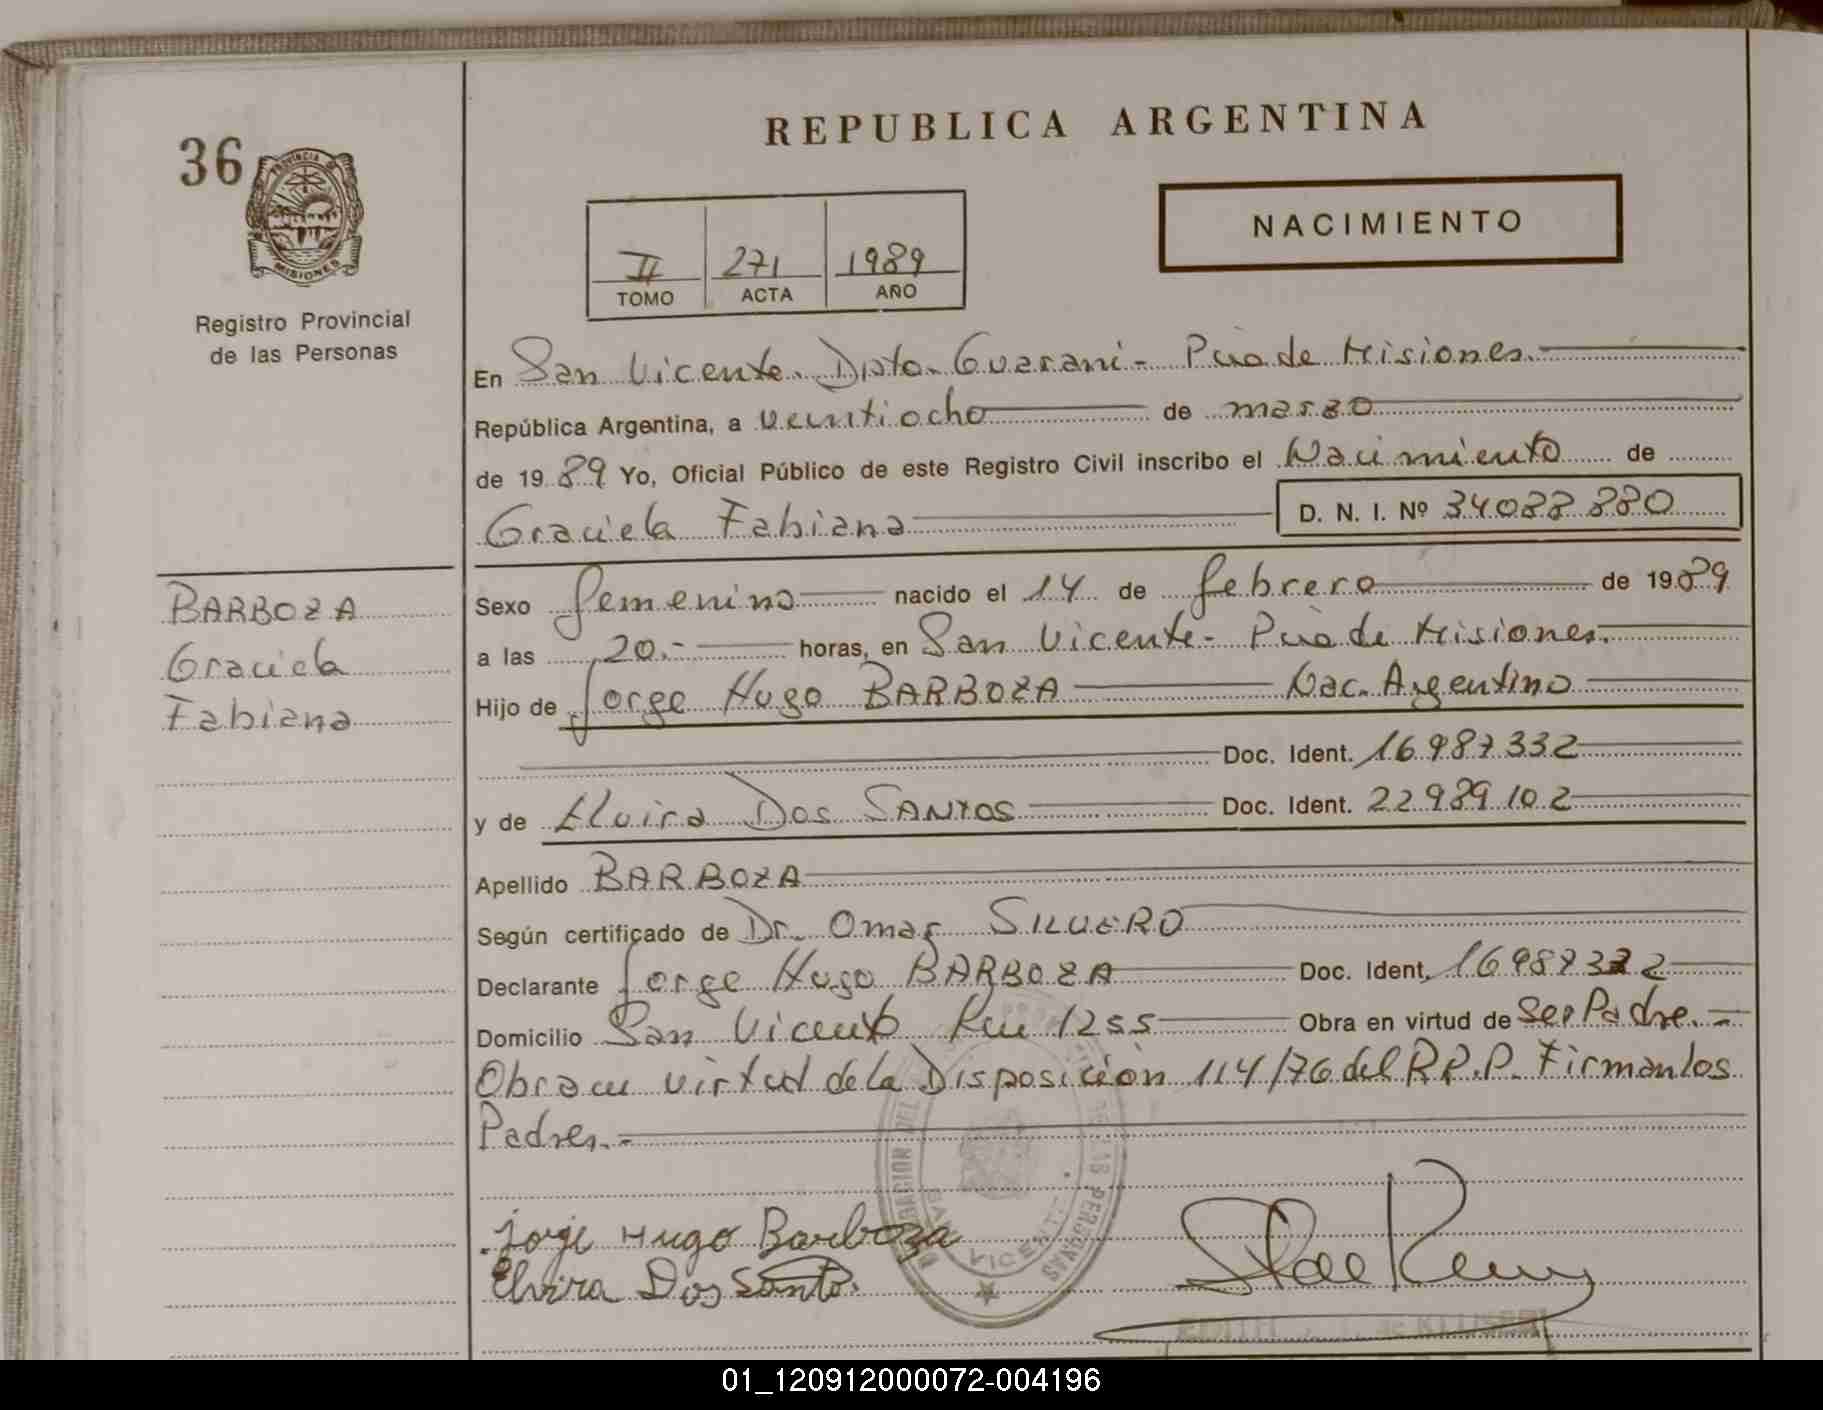 REPUBLICA ARGENTINA
36
PROVINCIA DE
MISIONES
Registro Provincial
de las Personas
NACIMIENTO
II 271 1989
TOMO ACTA AÑO
En San Vicente. Dpto. Guarani - Pcia de Misiones.
República Argentina, a veintiocho de marzo
de 1989 Yo, Oficial Público de este Registro Civil inscribo el Nacimiento de
Graciela Fabiana D. N. I. Nº 34088880
BARBOZA
Graciela
Fabiana
Sexo femenino nacido el 14 de febrero de 1989
a las 20.- horas, en San Vicente - Pcia de Misiones.
Hijo de Jorge Hugo BARBOZA Nac. Argentino
Doc. Ident. 16.987.332
y de Elvira Dos SANTOS Doc. Ident. 22.989.102
Apellido BARBOZA
Según certificado de Dr. Omar SILVERO
Declarante Jorge Hugo BARBOZA Doc. Ident. 16987332
Domicilio San Vicente Km 1255 Obra en virtud de Ser Padre.-
Obra en virtud de la Disposición 114/76 del R.P.P. Firman los
Padres.-
Jorge Hugo Barboza
Elvira Dos Santo.
DELEGACION DEL DE LAS PERSONAS
SAN VICENTE
EDITH de
01_120912000072-004196